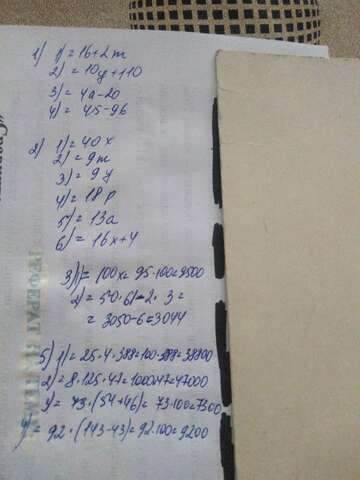 1) 1) = 16+2m
2) = 10y+110
3) = 4a-20
4) = 45-9b
2) 1) = 40x
2) = 9m
3) = 9y
4) = 18p
5) = 13a
6) = 16x+4
3) 1) = 100x = 95·100=9500
2) = 50·61-2·3=
= 3050-6=3044
5) 1) = 25·4·388=100·388=38800
2) = 8·125·47=1000·47=47000
3) = 73·(54+46)= 73·100=7300
92·(143-43)=92·100=9200
РЕФЕРАТ